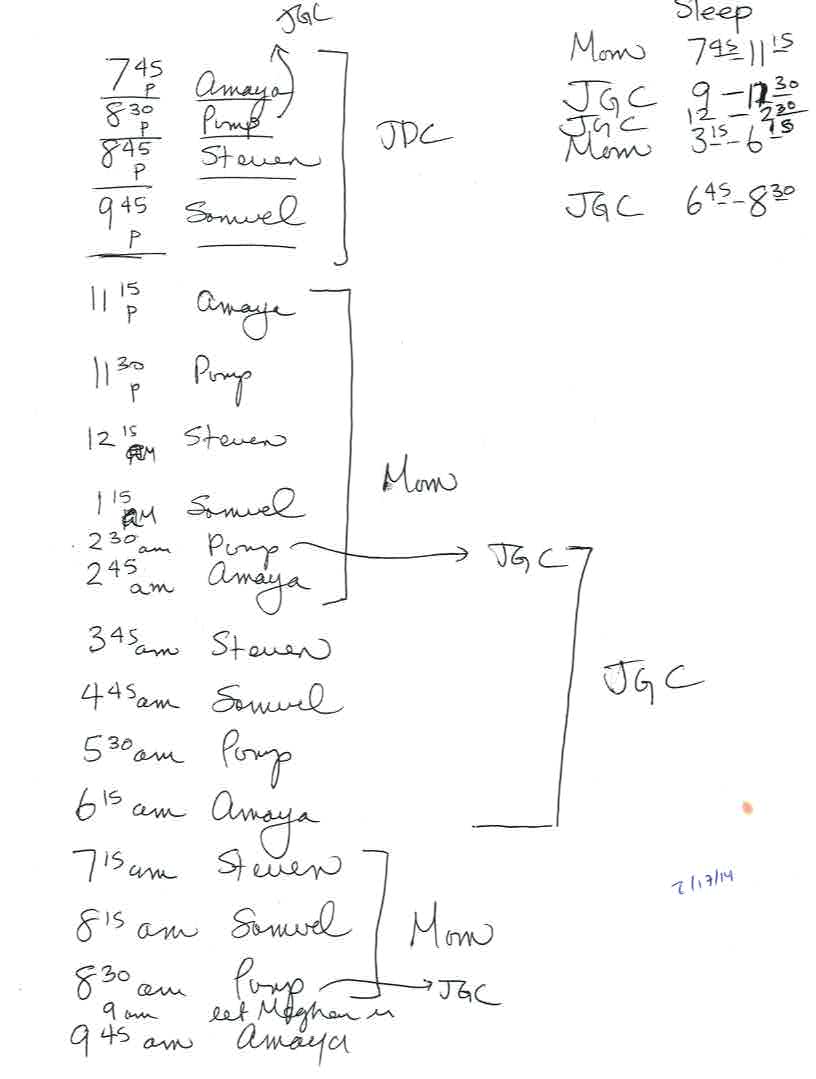 JGC
Sleep
Mom 7 45 - 11 15
JGC 9 - 30
JGC 12 - 2 30
Mom 3 15 - 6 15
JGC 6 45 - 8 30
7 45 p Amaya
8 30 p Pump
8 45 p Steven
JDC
9 45 p Samuel
11 15 p Amaya
11 30 p Pump
12 15 AM Steven
Mom
1 15 AM Samuel
2 30 am Pump JGC
2 45 am Amaya
3 45 am Steven
JGC
4 45 am Samuel
5 30 am Pump
6 15 am Amaya
7 15 am Steven
2/17/14
8 15 am Samuel
Mom
8 30 am Pump JGC
9 am let Meghan in
9 45 am Amaya